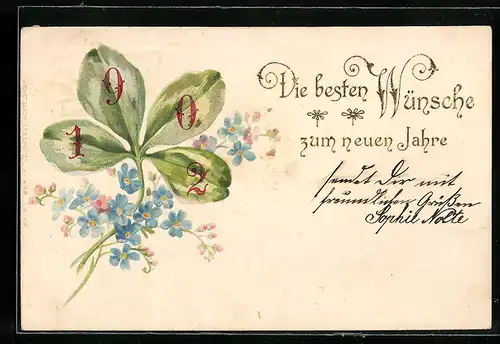 1902
Die besten Wünsche
zum neuen Jahre
sendet Dir mit
freundlichen Grüßen
Sophie Nolte